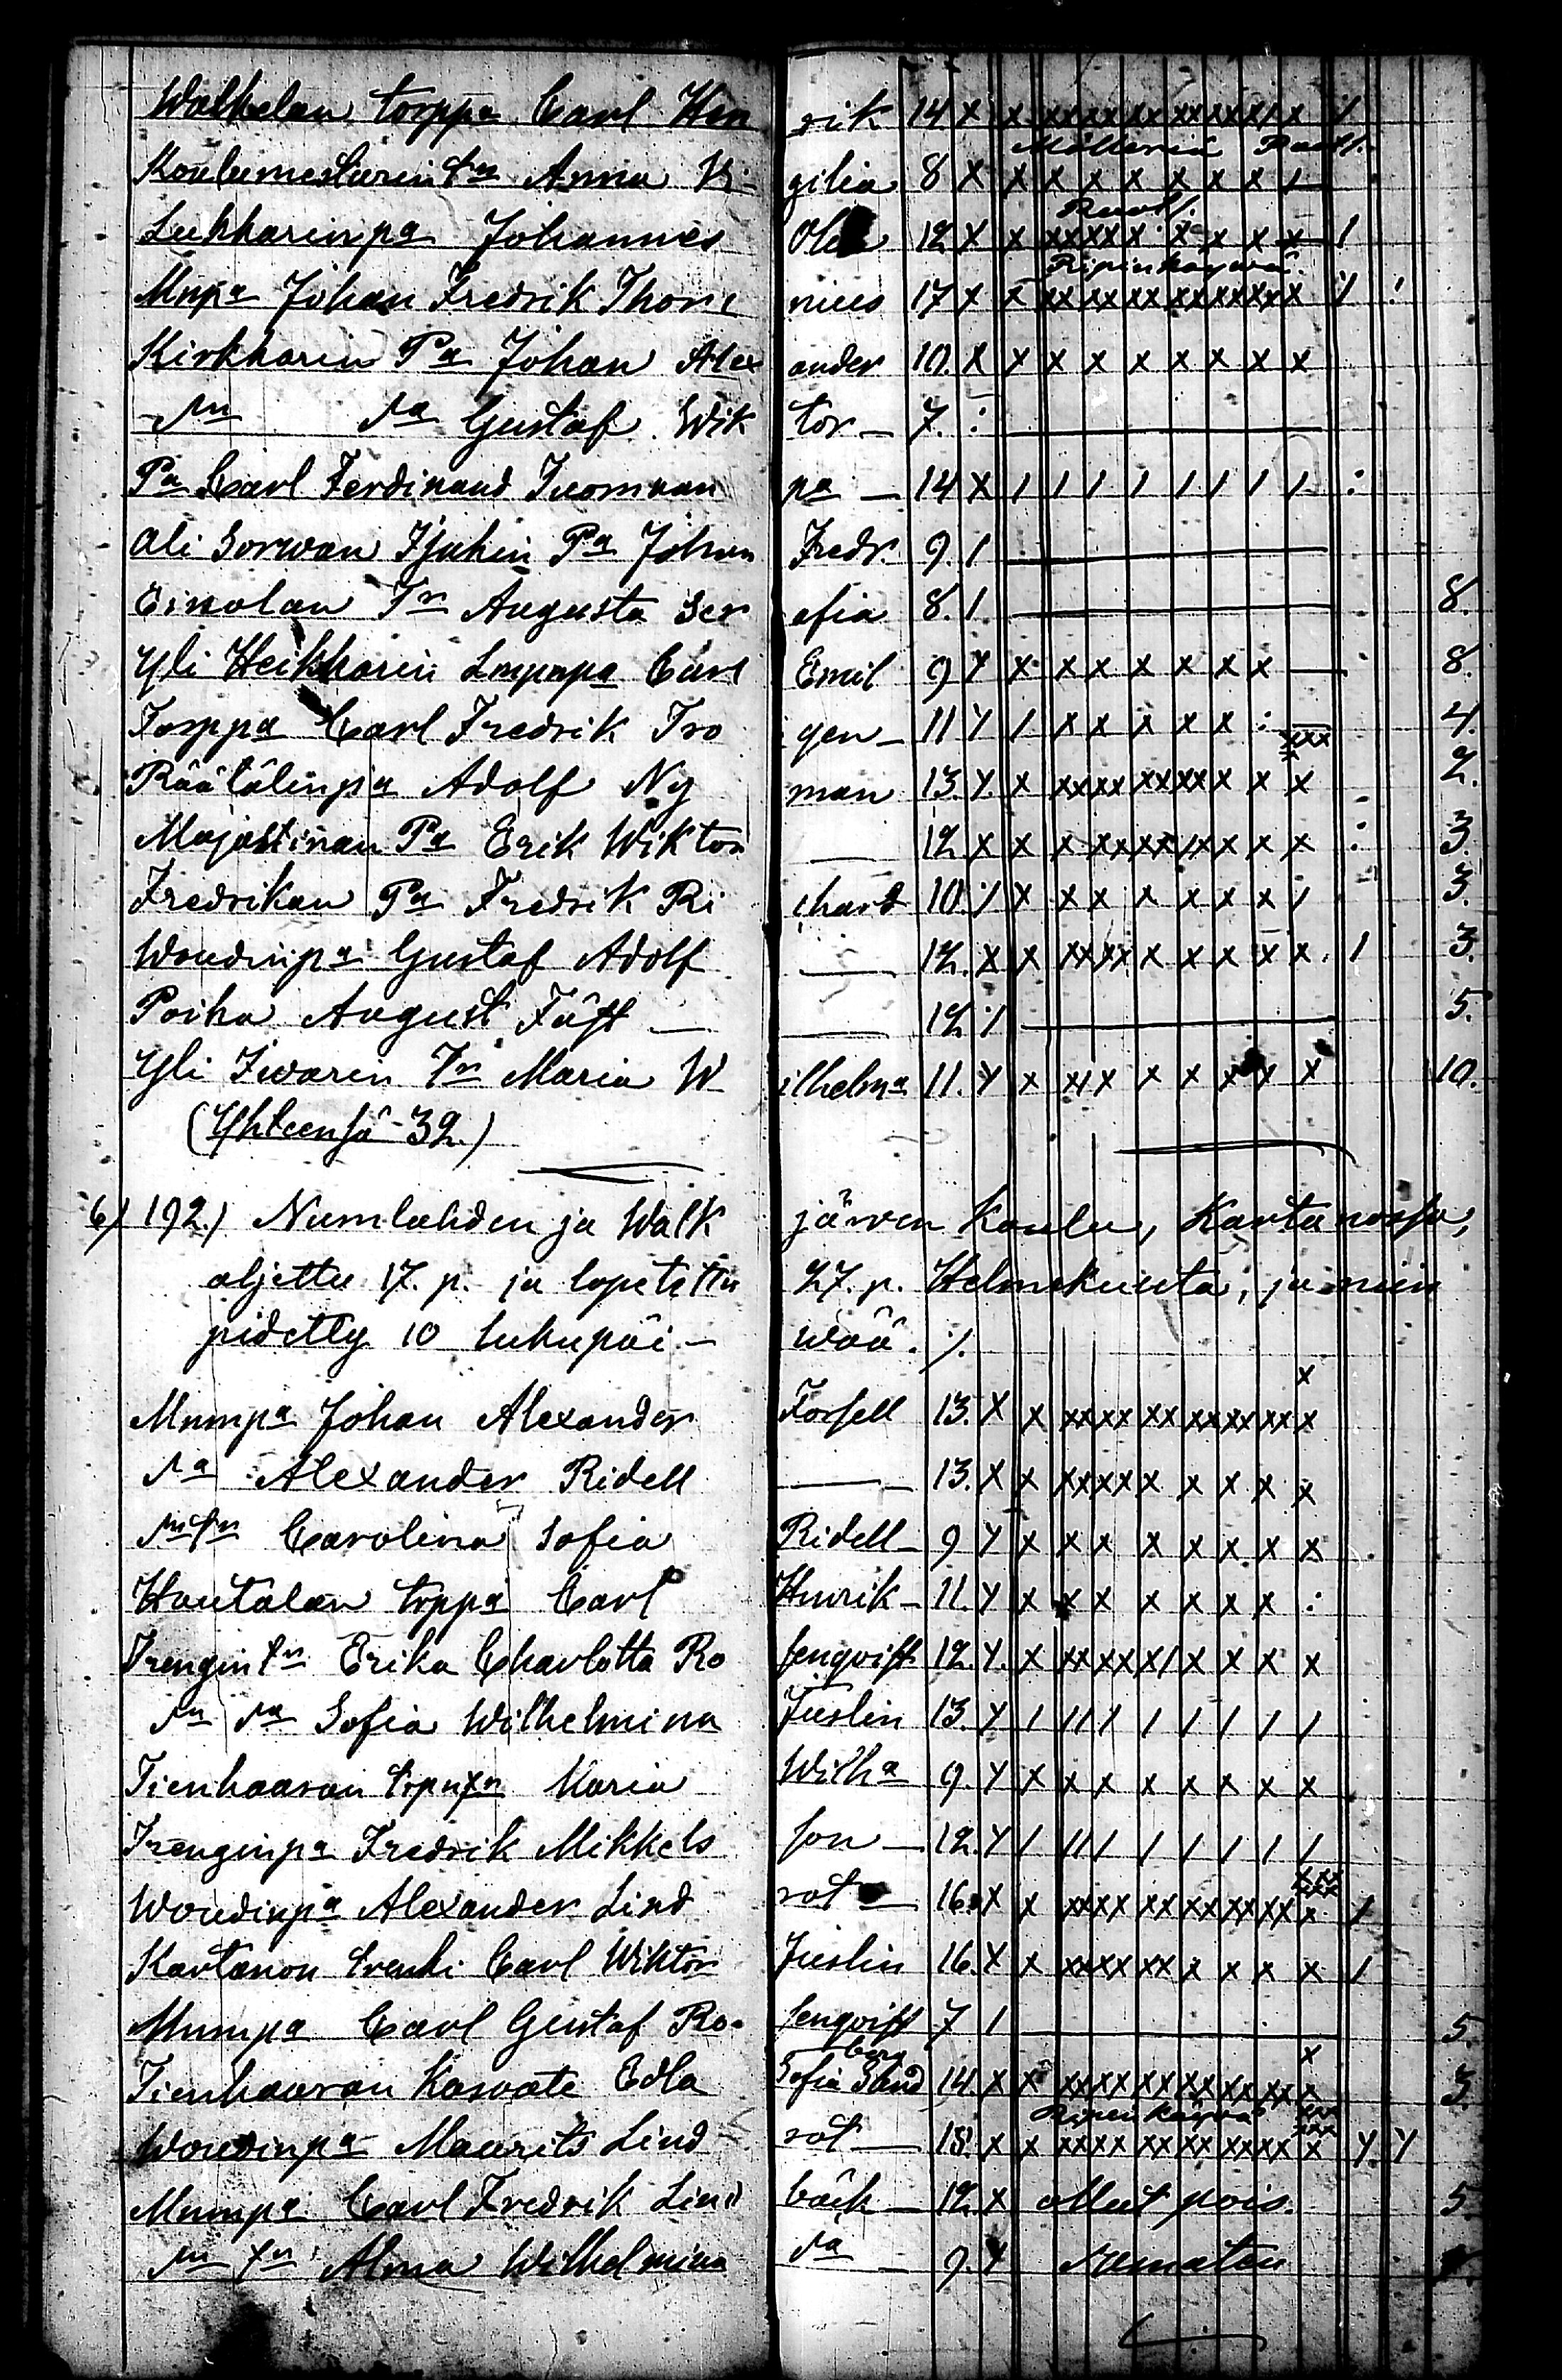 Walkelan torppa Carl Hen rik 14 x x xx xx xx xx xx x/ x /
Möllerin Ruots.
Koulumestarin tr Anna Vi- gilia 8 x x x x x x x x /
Ruots.
Lukkarinpa Johannes 12 x x xx xx x x x x x /
Ripinkäywä
Mnpa Johan Fredrik Thore nius 17 x x xx xx xx xx xx xx x /
Kirkkarin Pa Johan Alex ander 10. x x x x x x x x x
Gustaf Wik tor — 7.
Pa Carl Ferdinand Tuoman pa — 14 x / / / / / / / /
Ali Sorwan Pa Johan Fredr. 9. /
Einolan Tr Augusta Ser afia 8. / 8.
Yli Heikkarin Lmpupa Carl Emil 9 x x x x x x x x — 8.
Torppa Carl Fredrik Tro gen — 11 / x x x x x 4.
Räätälinpa Adolf Ny man 13. x xx xx xx xx x x x 2.
Majastinan Pa Erik Wiktor — 12 x x x xx xx /x x x x 3.
Fredrikan Pa Fredrik Ri chard 10. x x x x x x x / 3.
Woudinpa Gustaf Adolf — 12. x x xx xx x x x x x / 3.
Poika August Täft — — 12 5.
Yli Iwarin Tr Maria W ilhelma 11. x x x/ x x x x x x 10.
(Yhteensä 32.)
6) 192.) Numlahden ja Walk järwen Koulu, Kartanossa,
aljettu 17. p. ja lopetettu 27. p. Helmikuuta, ja niin
pidetty 10 lukupäi- wää. /.
Mnmpa Johan Alexander Forsell 13. x x xx xx xx xx xx xx x
Alexander Ridell — 13. x x xx xx x x x x x
Carolina Sofia Ridell — 9 x x x x x x x x
Hautalan torppa Carl Henrik — 11. x x x x x x x
Trengin tr Erika Charlotta Ro senqvist 12. x xx xx x/ x x x x
Sofia Wilhelmina Juslin 13. / // / / / / / /
Tienhaaran Maria Wilha 9. x x x x x x x x
Trenginpa Fredrik Mikkels son — 12. / // / / / / / /
Woudinpa Alexander Lind rot — 16. x x xx xx xx xx xx xx x /
Kartanon trenki Carl Wiktor Juslin 16. x x xx xx xx x x x x /
Mnmpa Carl Gustaf Ro- senqvist 7 / 5.
berg
Tienhaaran Kaswate Edla Sofia Sand 14. x x xx xx xx xx xx xx x 3.
Ripin käywä
Woudinpa Maurits Lind rot — 18. x x xx xx xx xx xx xx x
Mnmpa Carl Fredrik Lind bäck — 12. x ollut pois. 5.
Alma Wilhelmina — 9.